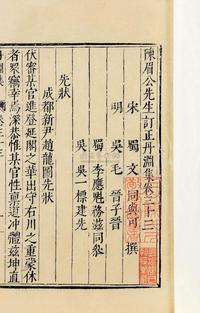 陳眉公先生訂正丹淵集卷三十三
宋 蜀 文 同與可 撰
明 吳 毛 晉子晉
蜀 李應魁務滋同參
吳 吳一標建先
先狀
成都新尹趙龍圖先狀
伏審某官進登延閣之華出守右川之重蒙休
者衆竊幸爲深恭惟某官性稟道沖體茲坤直